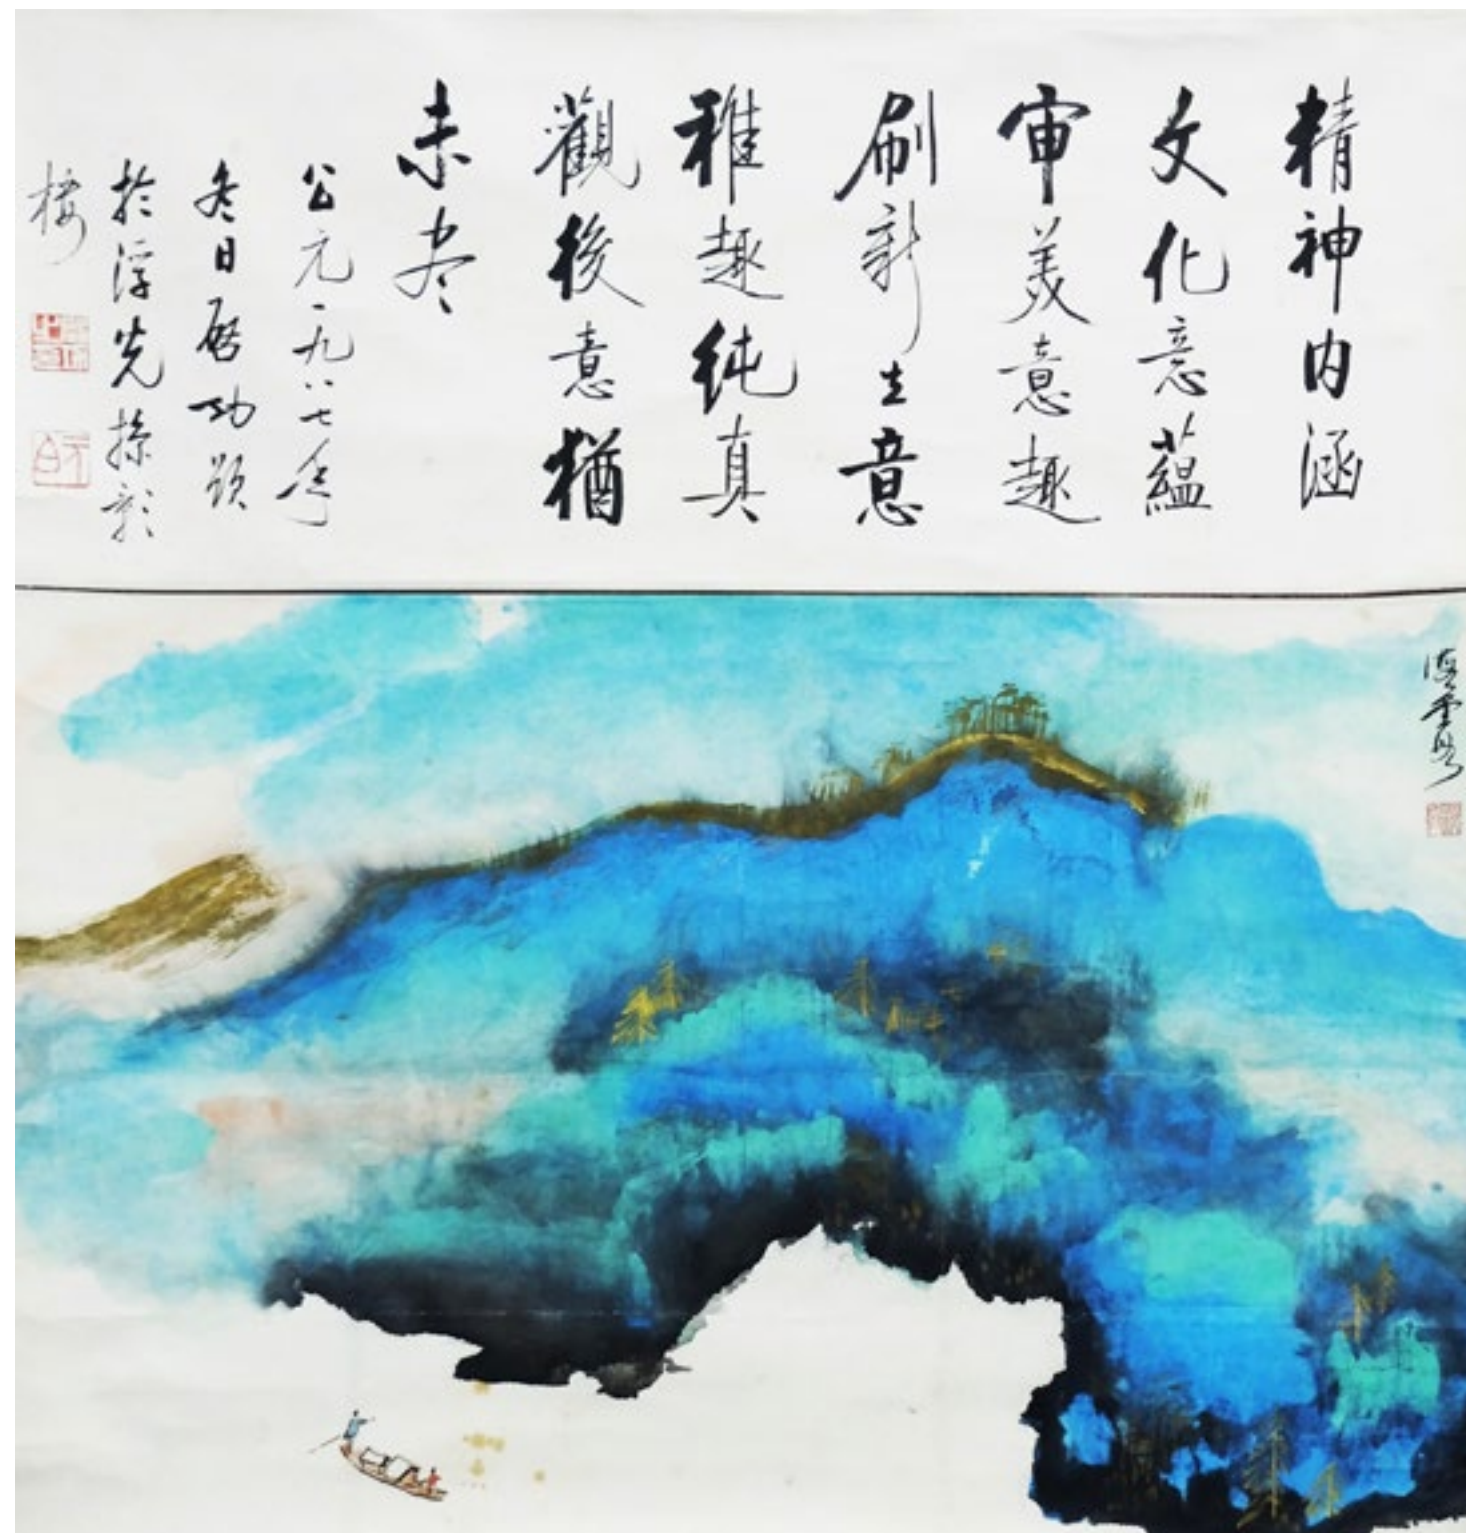 精神内涵
文化意蘊
审美意趣
刷新立意
稚趣纯真
觀後意猶
未尽
公元一九八七年
冬日启功题
於浮光掠影
楼